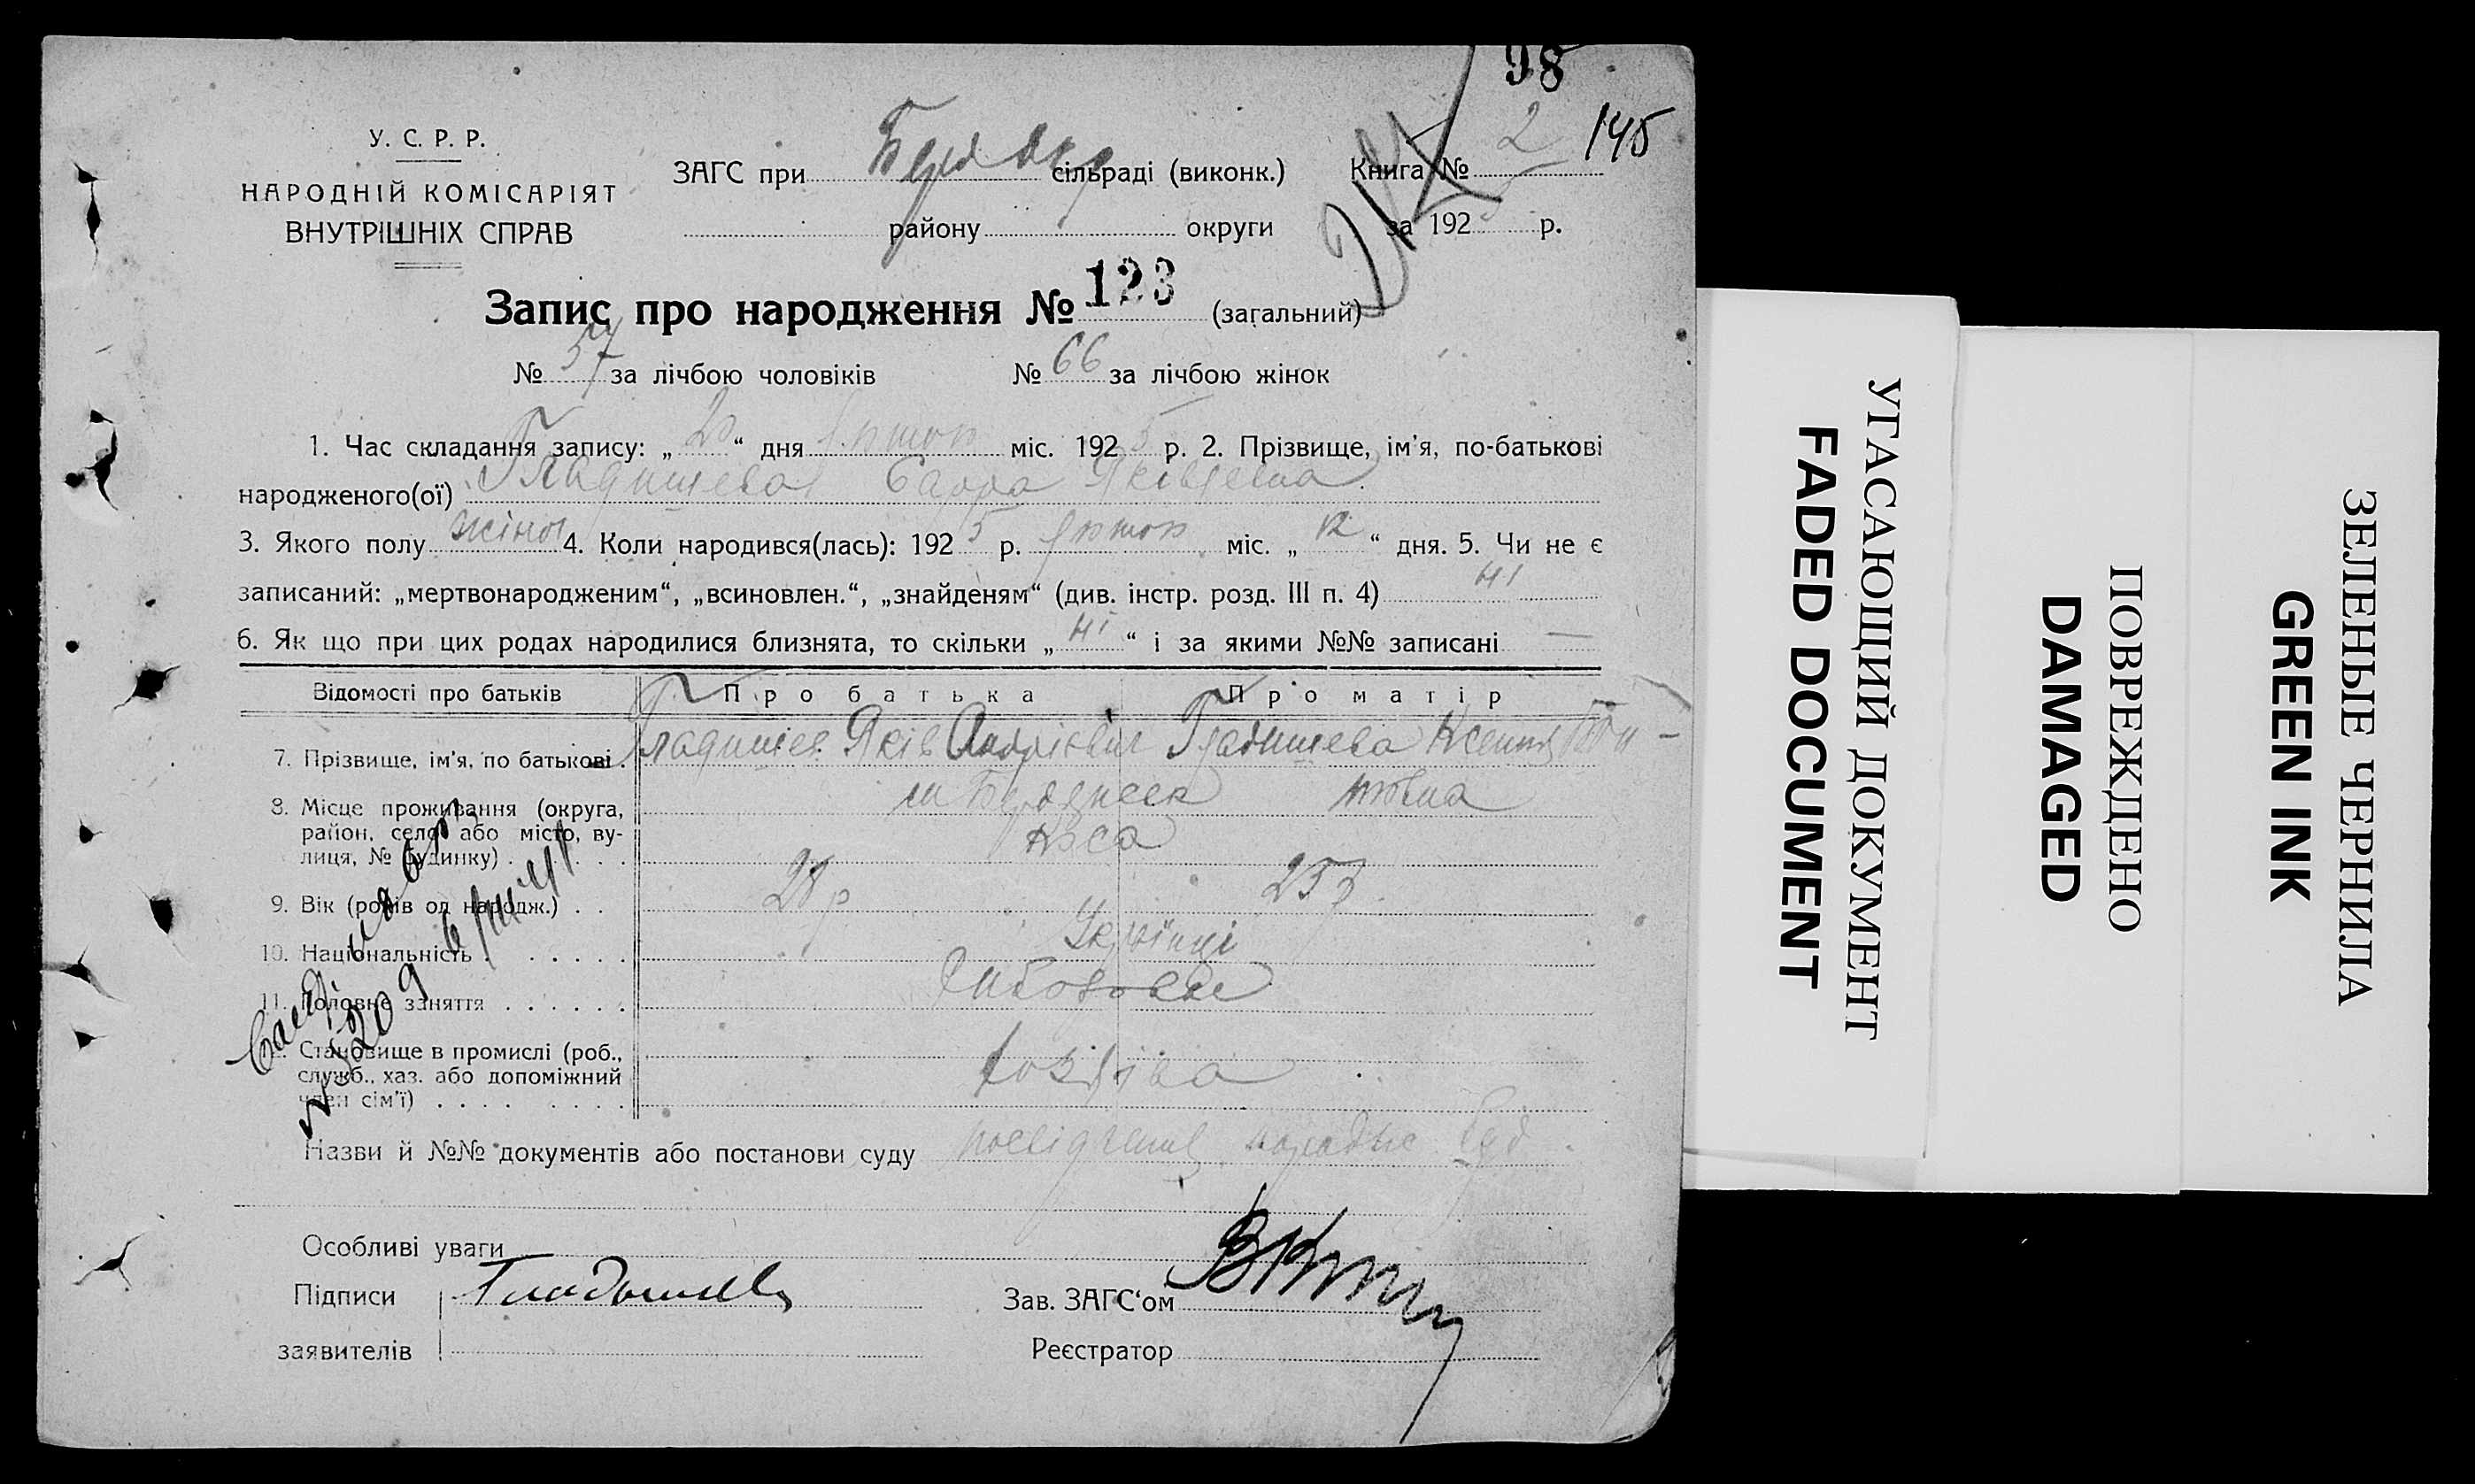 98
145
У. С. Р. Р.
НАРОДНІЙ КОМІСАРІЯТ
ВНУТРІШНІХ СПРАВ
ЗАГС при сільраді (виконк.) Книга № 2
району округи за 192 р.
Запис про народження № 123 (загальний)
№ 57 за лічбою чоловіків № 66 за лічбою жінок
1. Час складання запису: „ 20 “ дня міс. 192 5 р. 2. Прізвище, ім'я, по-батькові
народженого(ої) Гладишева Яківлевна
3. Якого полу жіноч 4. Коли народився(лась): 192 5 р. міс. „ 12 “ дня. 5. Чи не є
записаний: „мертвонародженим“, „всиновлен.“, „знайденям“ (див. інстр. розд. III п. 4) ні
6. Як що при цих родах народилися близнята, то скільки „ ні “ і за якими №№ записані —
Відомості про батьків Про батька Про матір
7. Прізвище, ім'я, по батькові . Гладишев Яків Андрієвич Гладишева Ксения
8. Місце проживання (округа,
район, село або місто, ву-
лиця, № будинку) . . . . . коса
9. Вік (років од народж.) . . 28 р 25 р.
10. Національність . . . . . . Українці
11. Головне заняття . . . . . .
12. Становище в промислі (роб.,
служб., хаз. або допоміжний
член сім'ї) . . . . . . . . хозяїва
Назви й №№ документів або постанови суду
Особливі уваги
Підписи Гладышев Зав. ЗАГС‘ом
заявителів Реєстратор
УГАСАЮЩИЙ ДОКУМЕНТ
FADED DOCUMENT
ПОВРЕЖДЕНО
DAMAGED
ЗЕЛЕНЫЕ ЧЕРНИЛА
GREEN INK